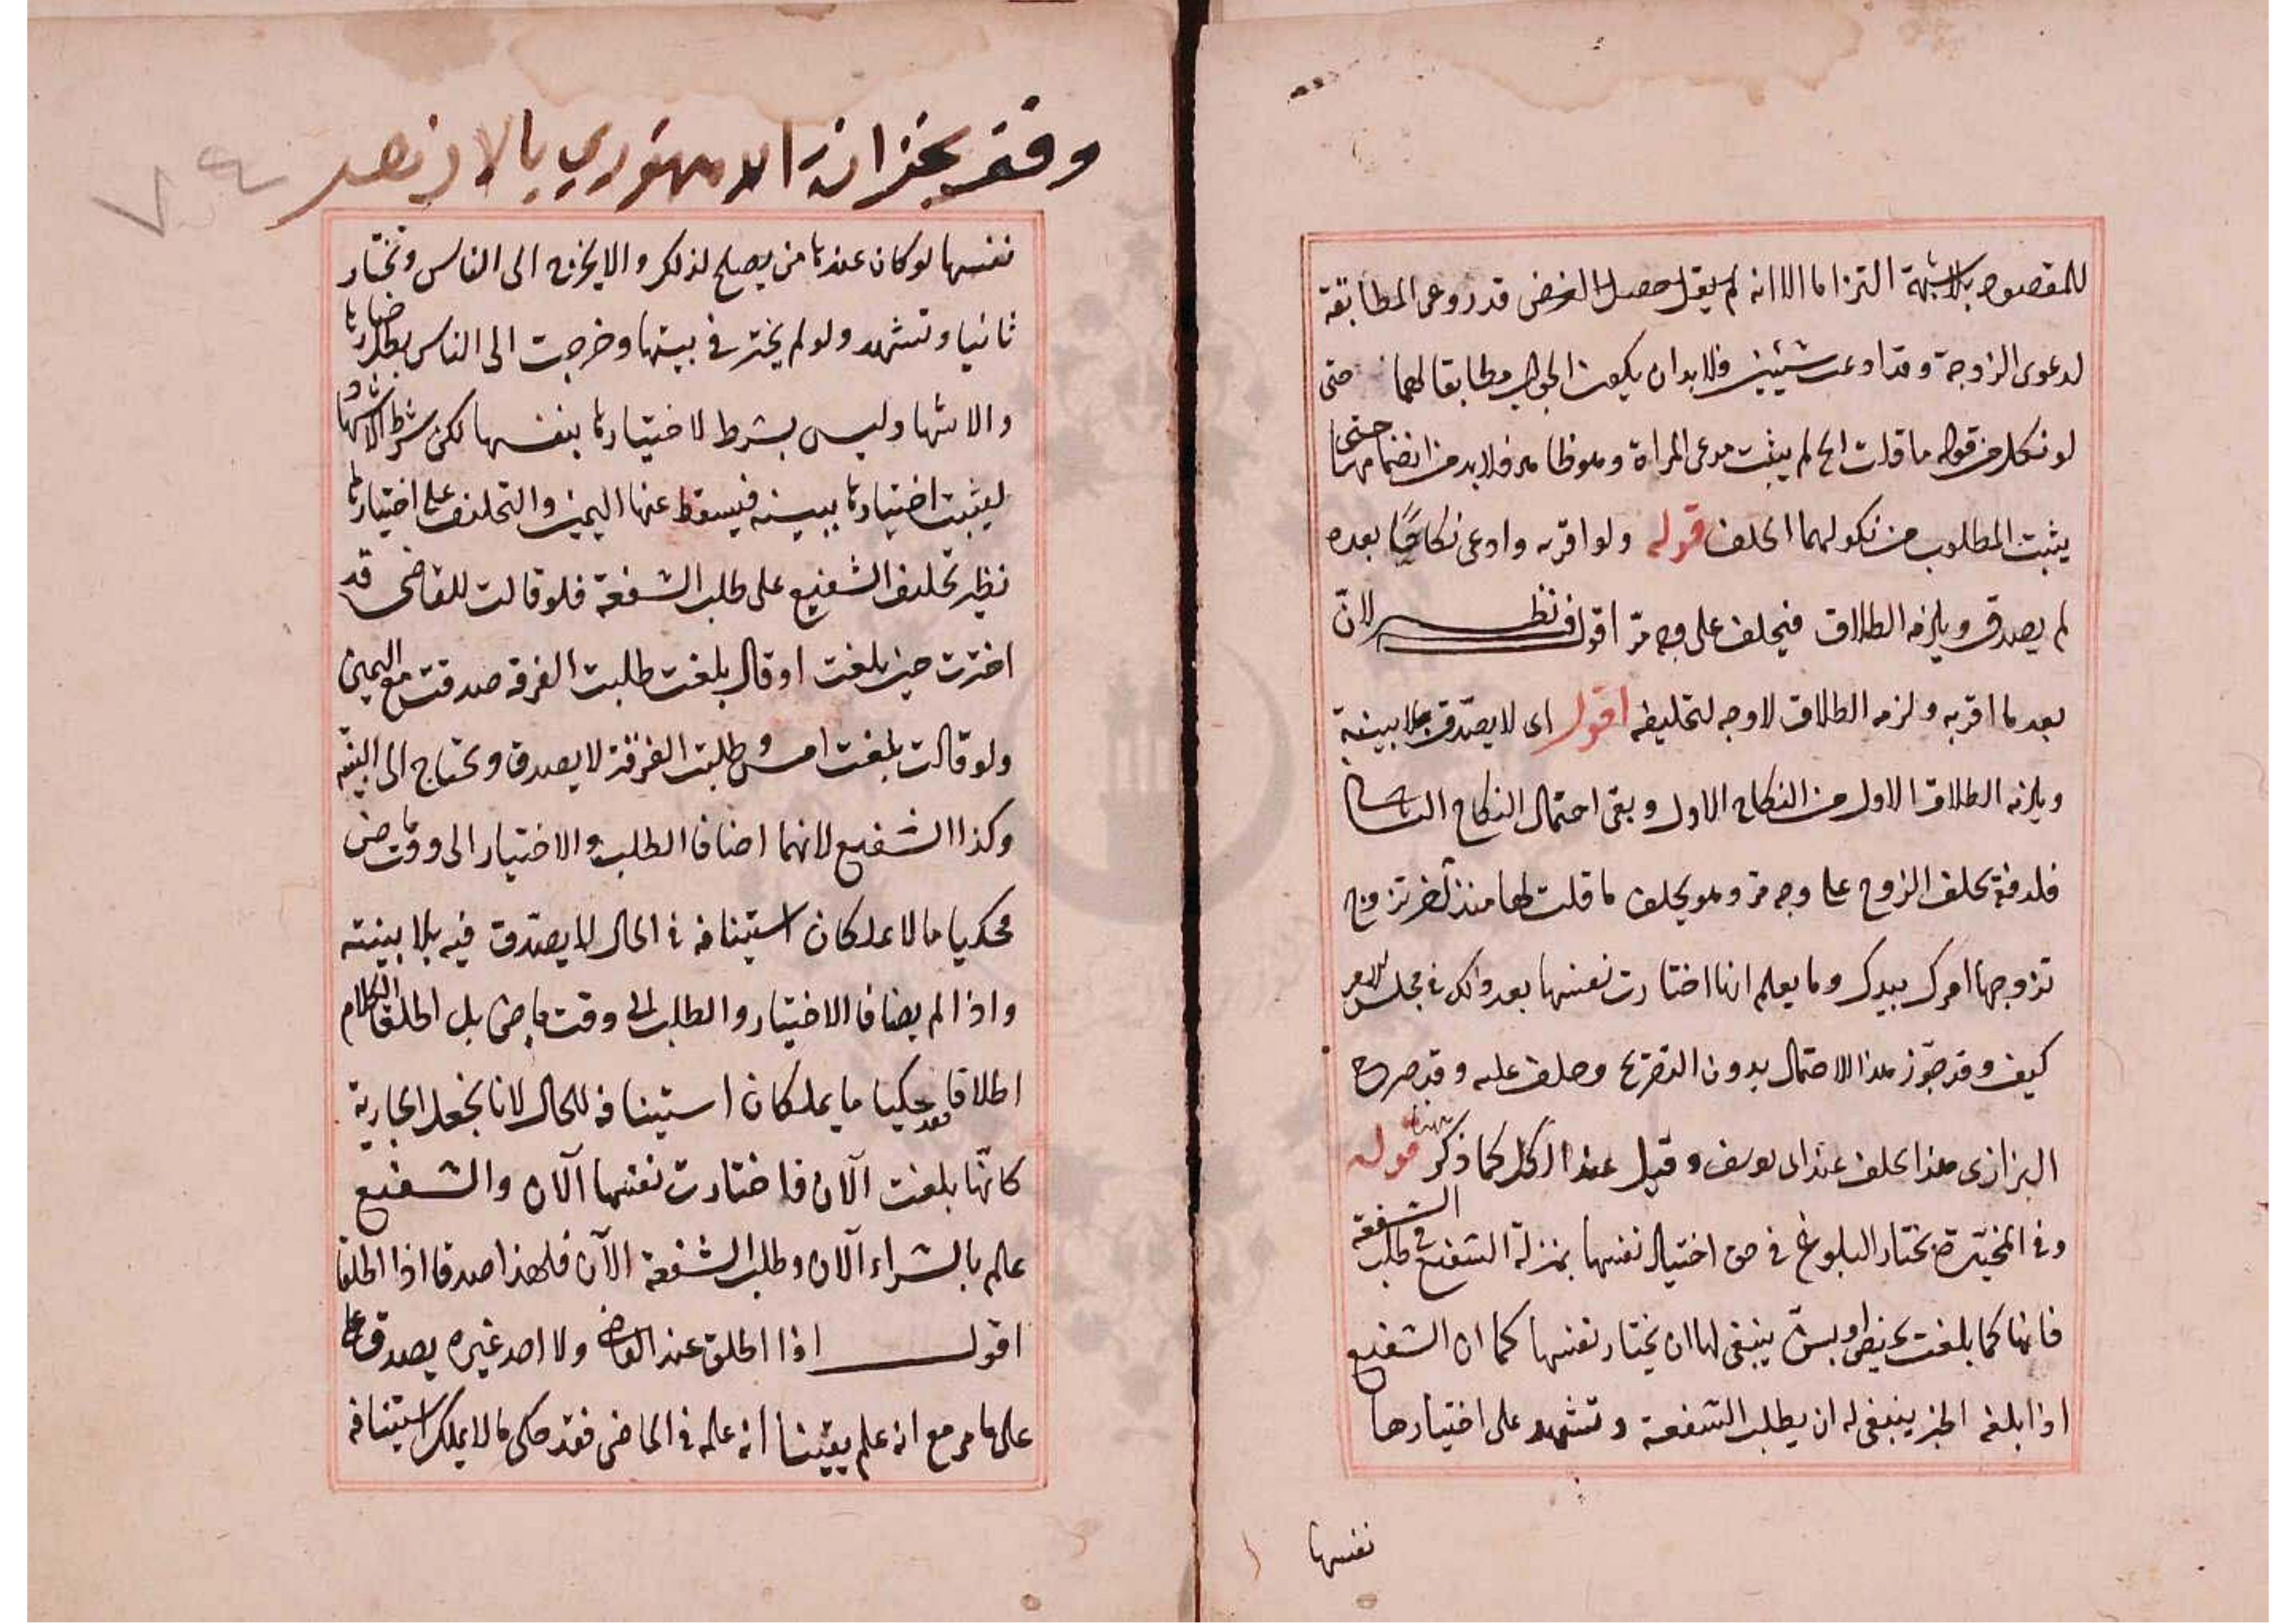 للمقصود بلا شبهة التزاما الا انه لم يقل حصل الغرض قد روعى المطابقة
لدعوى الزوجة وقد ادعت شيئين فلا بد ان يكون الجواب مطابقا لهما حتى
لو نكل من قوله ما قلت الخ لم يثبت مدعى المراة وهو ظاهر فلا بد من انضمامهما حتى
يثبت المطلوب من نكولهما الحلف قوله ولو اقر به وادعى نكاحًا بعده
لم يصدق ويلزمه الطلاق فيحلف على وجه مرّ اقول فيه نظر لانّ
بعد ما اقر به ولزمه الطلاق لا وجه لتحليفه اقول اى لا يصدّق بلا بينة
ويلزمه الطلاق الاول من النكاح الاول وبقى احتمال النكاح
فلدفعه يحلف الزوج على وجه مر وهو يحلف ما قلت لها منذ آخر تزوج
تزوجها امرك بيدك وما يعلم انها اختارت نفسها بعد ذلك فى مجلس الامر
كيف وقد جوّز هذا الاحتمال بدون التصريح وحلف عليه وقد صرح
البزازى هذا يحلف عند ابى يوسف وقيل عند الكل كما ذكر قوله
وفى المخيّرة بخيار البلوغ فى حق اختيار نفسها بمنزلة الشفيع فى طلب الشفعة
فانها كما بلغت بحيض او بسن ينبغى لها ان يختار نفسها كما ان الشفيع
اذا بلغه الخبر ينبغى له ان يطلب الشفعة وتشهد على اختيارها
نفسها
وقف بخزانة الدمنهوري بالازهر
نفسها لو كان عندها من يصلح لذلك والا يخرج الى الناس وتختار
ثانيا وتشهد ولو لم يختر فى بيتها وخرجت الى الناس بطل خيارها
والاشهاد ليس بشرط لاختيارها بنفسها لكن شرط الاشهاد
ليثبت اختيارها ببينه فيسقط عنها اليمين والتحلف على اختيارها
نظير تحليف الشفيع على طلب الشفعة فلو قالت للقاضى قد
اخترت حين بلغت او قال بلغت طلبت الفرقه صدقت مع اليمين
ولو قالت بلغت امس وطلبت الفرقة لا يصدق ويحتاج الى البينه
وكذا الشفيع لانهما اضافا الطلب والاختيار الى وقت ماض
محكيا ما لا يملكان استينافه فى الحال لا يصدّق فيه بلا بينته
واذا لم يضافا الاختيار والطلب الى وقت ماض بل اطلقا الكلام
اطلاقا فقد حكيا ما يملكان استينافه للحال لانا نجعل الجارية
كانّها بلغت الآن فاختارت نفسها الآن والشفيع
علم بالشراء الآن وطلب الشفعة الآن فلهذا صدقا اذا اطلقا
اقول اذا اطلق عند القاضى ولا احد غيره يصدق على
على ما مر مع انه علم يقينا انه علمه فى الماضى فقد حكى ما لا يملك استينافه